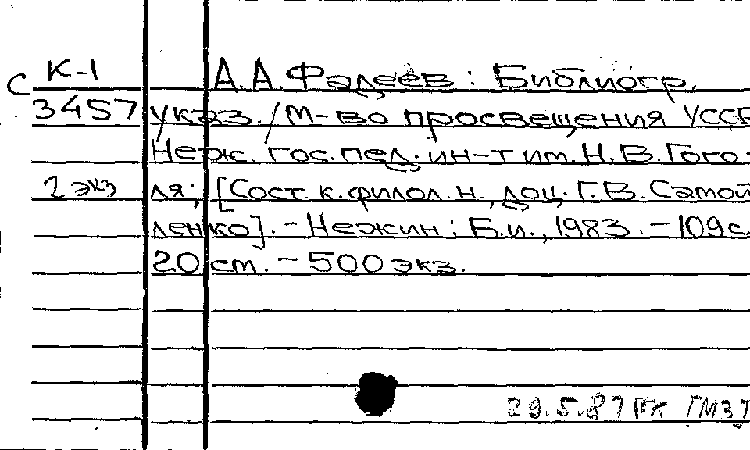 К-1
С
3457
2 экз
А.А. Фадеев: Библиогр.
указ. / М-во просвещения УССР
Неж. гос. пед. ин-т им. Н.В. Гого-
ля; [Сост. к. филол. н., доц. Г.В. Самой
ленко]. - Нежин: Б.и., 1983. - 109с.
20 см. - 500 экз.
29.5.87